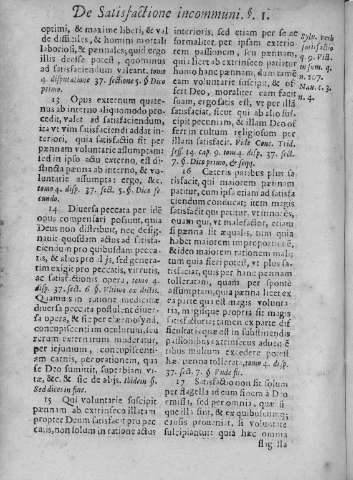 De Satisfactione in communi. §. 1.
optimi, & maxime liberi, & val
de dissiles, & homini mortali
laboriosi, & pænales; quid ergo
illis deesse potest, quominus
ad satisfaciendum valeant. tom.
4. disputatione 37. sectione 5. § Dico
primo.
13 Opus externum quate-
nus ab interno aliquomodo pro-
cedit, valet ad satisfaciendum,
ita vt vim satisfaciendi addat in-
teriori, quia satisfactio fit per
pænam voluntarie assumptam
sed in ipso actu externo, est di-
stincta pæna ab interno, & vo-
luntarie assumpta: ergo, &c.
tomo 4. disp. 37. sect. 5. §. Dico se
cundo.
14. Diuersa peccata per idē
opus compensari possunt, quia
Deus non distribuit, nec desig-
nauit quosdam actus ad satisfa-
ciendum pro quibusdam pecca-
tis, & alios pro alijs, sed genera-
tim exigit pro peccatis, virtutis,
ac satisfactionis opera, tomo 4
disp. 37. sect. 6 §. Vltimo ex dictis.
Quamuis in ratione medicinæ
diuersa peccata postulent diuer-
sa opera, & sic per elæmosynā,
concupiscentia oculorum, seu
rerum exteriorum moderatur,
per ieiunium, concupiscenti-
am carnis, per orationem, qua
se Deo sumittit, superbiam vi-
tæ, &c. & sic de alijs. ibidem §.
Sed dices in fine.
15 Qui voluntarie suscipit
pænnam ab extrinseco illatam
propter Deum satisfacit pro pec
catis, non solum in ratione actus
interioris, sed etiam per se ac
formaliter, per ipsam exterio-
rem passionem, seu pænam,
quam ab extrinseco patitur
homo hanc pænam, dum eam
voluntarie suscipit, & of
fert Deo, moraliter eam facit
suam, ergo satis est, vt per illā
satisfaciat, sicut qui ab alio sus-
cipit pecuniam, & illam Deo of
fert in cultum religiosum per
illam satisfacit. Vide Conc. Trid.
sess. 14. cap. 9. tomo 4. disp. 37. sect.
7. §. Dico primo, & seqq.
16 Cæteris paribus plus sa-
tisfacit, qui maiorem pænam
patitur, cum ipsa etiam ad satisfa
ciendum conducat; item magis
satisfacit qui patitur
quam qui, vt malefactor, etiam
si pænna sit æqualis
habet maiorem improportionē,
& ideo maiorem rationem mali;
tum quia fieri potest, vt plus sa-
tisfaciat, quis per hanc pænam
tolleratam, quam per sponte
assumptam, quia pænna licet ex
ea parte qua est magis volunta-
ria, magisque propria sit magis
satisfactoria; tamen ex parte dif
ficultatis quæ est in substinendis
passionibus extrinsecus aduenien
tibus multum excedere potest
hæc pænna tollerata, tomo 4. disp.
37. sect. 7. §. Vnde fit.
17 Satisfactio non fit solum
per flagella ad eum finem à Deo
emissi, sed per omnia, quæ si-
ue illi sint, & ex quibuscunque
causis proueniant, si voluntarie
suscipiantur quia hæc omnia
flagella